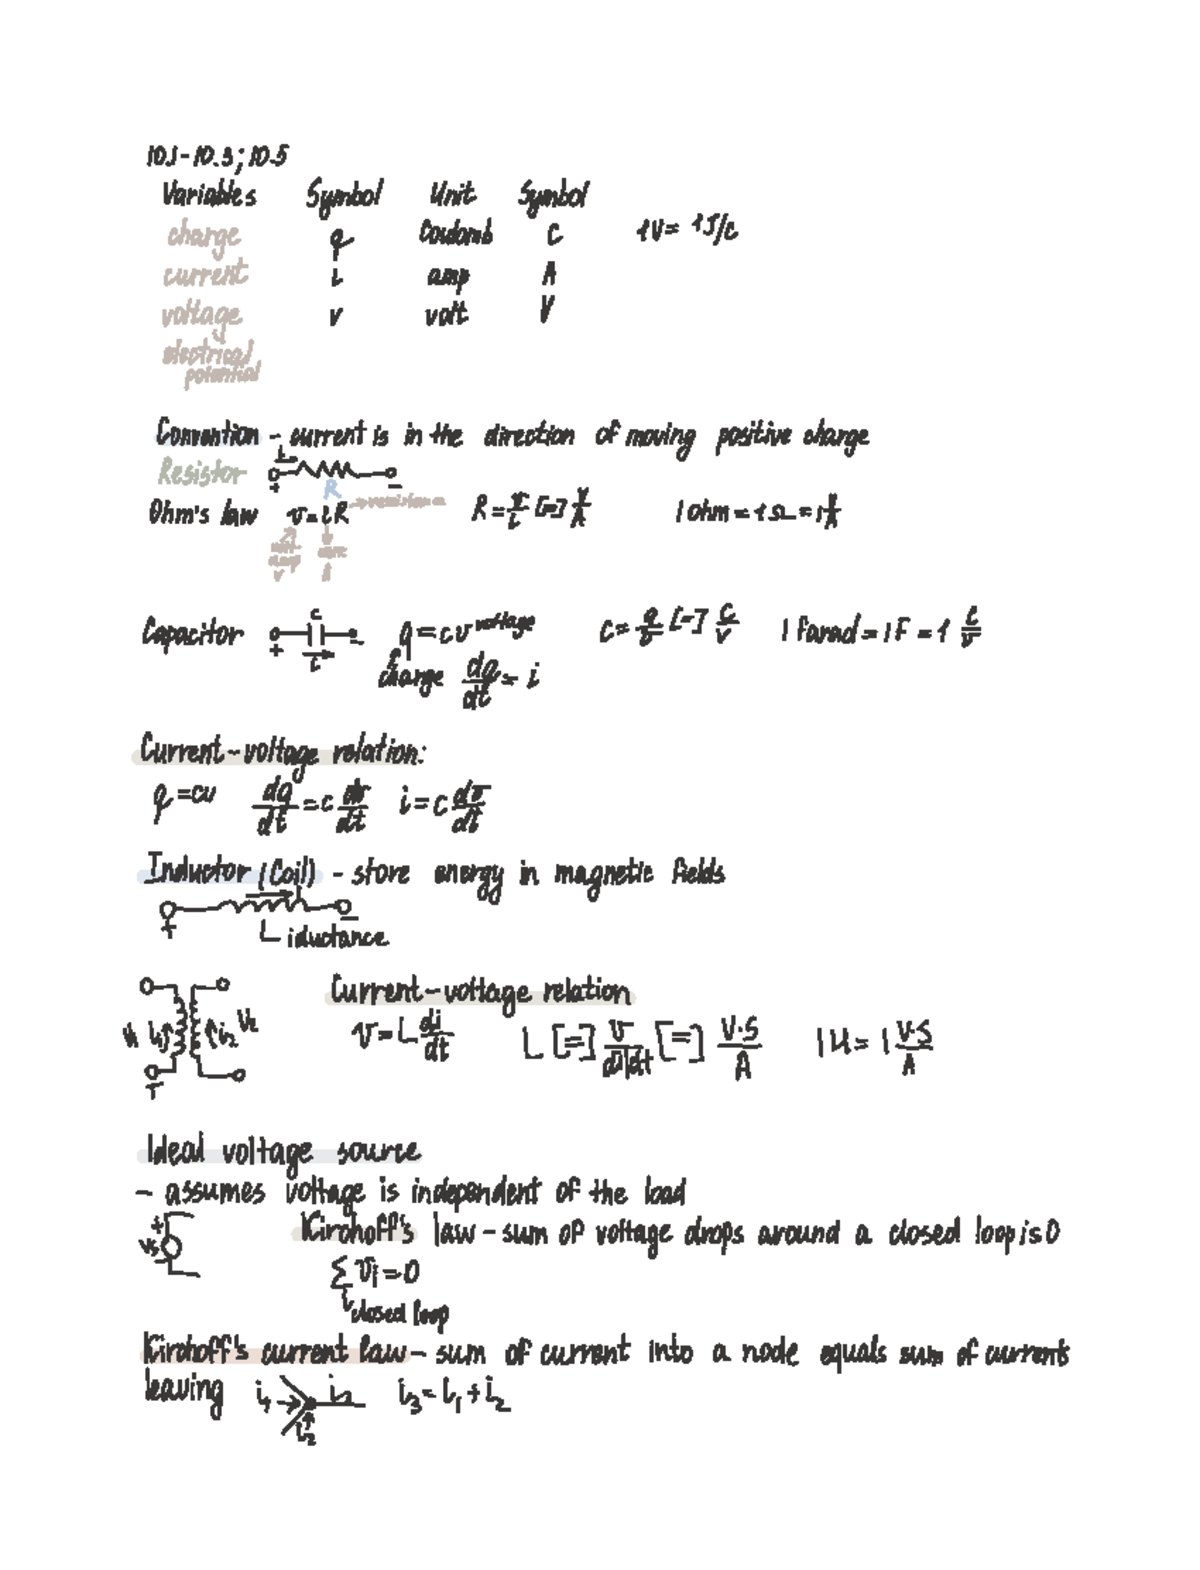 10.1-10.3; 10.5
Variables Symbol Unit Symbol
charge q Coulomb C 1V = 1J/C
current i amp A
voltage v volt V
electrical
potential
Convention - current is in the direction of moving positive charge
Resistor i + - R
Ohm's law v = iR R = v/i [=] V/A 1 ohm = 1Ω = 1 V/A
Capacitor C + - i q = cv voltage c = q/v [=] C/V 1 Farad = 1F = 1 C/V
charge dq/dt = i
Current-voltage relation:
q = cv dq/dt = c dv/dt i = c dv/dt
Inductor (Coil) - store energy in magnetic fields
+ - L iductance
Current-voltage relation
V1 i1 i2 V2 v = L di/dt L [=] v/di/dt [=] V·S/A 1H = 1 V·S/A
Ideal voltage source
- assumes voltage is independent of the load
+ Vs - Kirchoff's law - sum of voltage drops around a closed loop is 0
Σ vi = 0
closed loop
Kirchoff's current law - sum of current into a node equals sum of currents
leaving i1 i2 i3 = i1 + i2